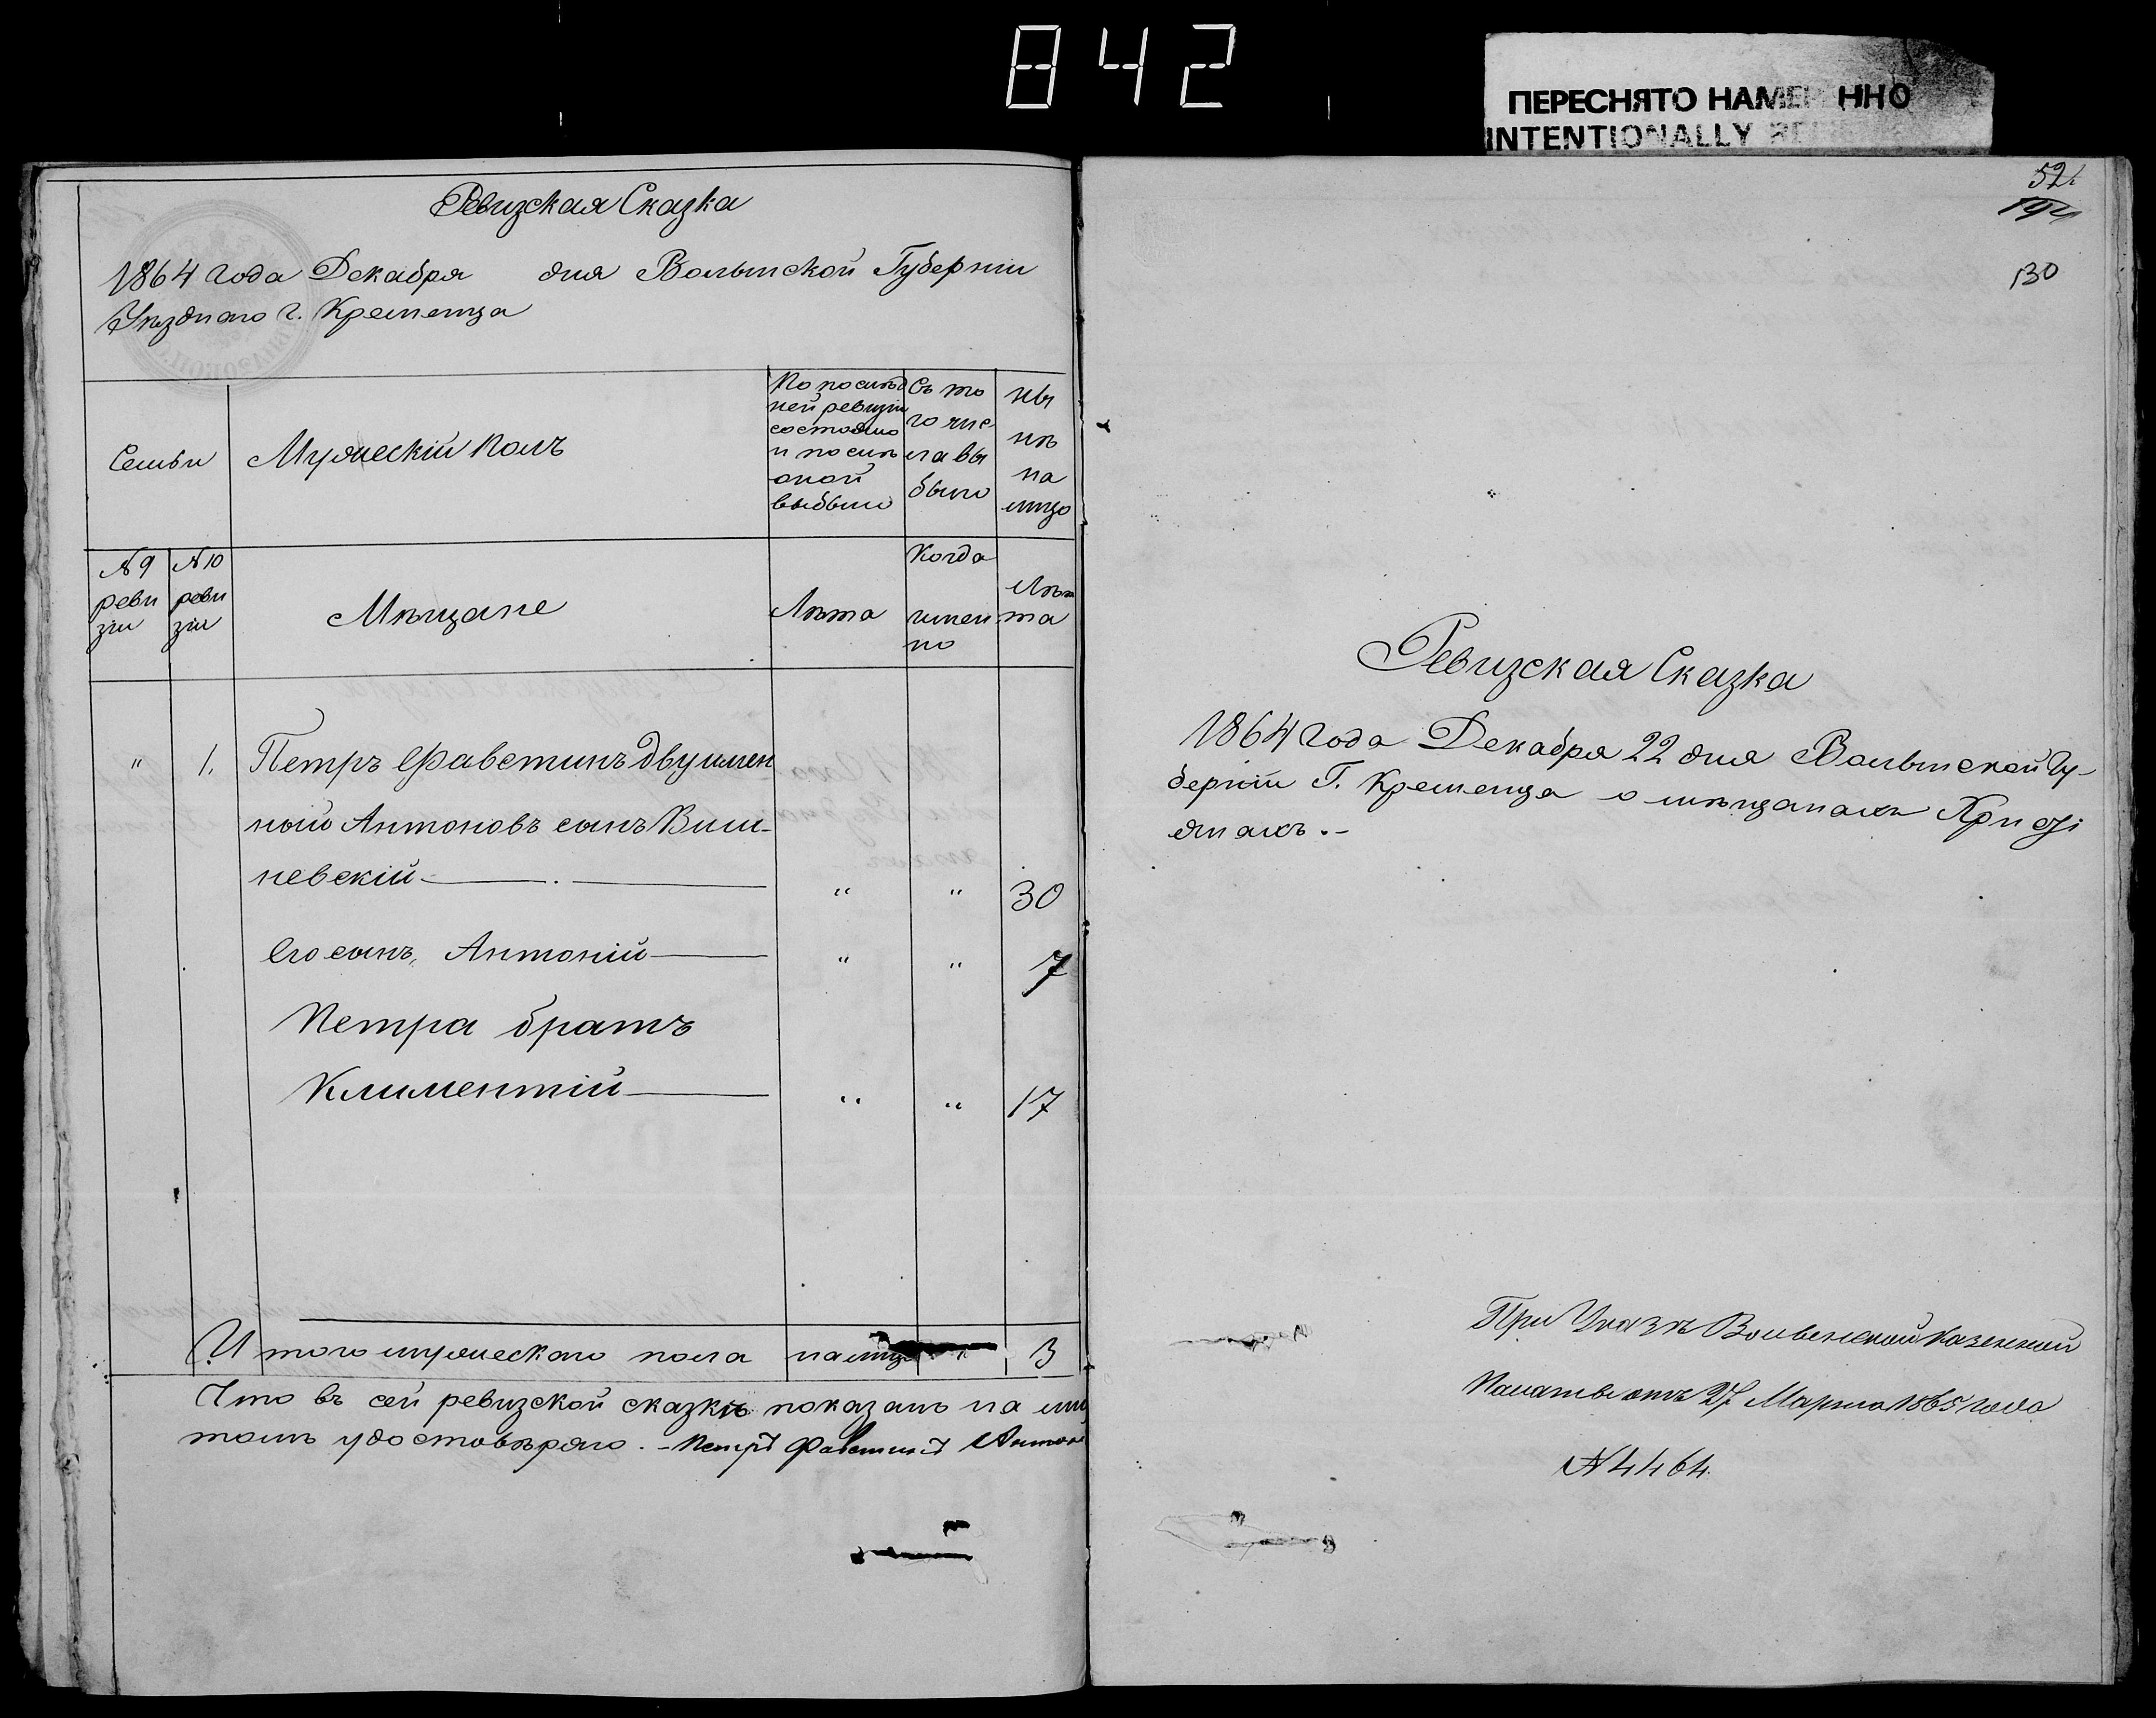 842
ПЕРЕСНЯТО НАМЕРЕННО
INTENTIONALLY
Ревизская Сказка
1864 года Декабря дня Волынской Губернии
Уѣзднаго г. Кременца
Семьи
Мужескій полъ
По послѣд
ней ревизіи
состояло
и послѣ
оной
выбыло
Съ то
го чис
ла вы
было
ны
нѣ
на
лицо
№ 9
реви
зіи
№ 10
реви
зіи
Мѣщане
Лѣта
Когда
имен
но
Лѣ
та
" 1. Петръ Фавстинъ двуимен
ный Антоновъ сынъ Виш-
невскій " " 30
Его сынъ, Антоній " " 7
Петра братъ
Климентій " " 17
Итого мужескаго пола на лицо 3
Что въ сей ревизской сказкѣ показано на ли
томъ удостовѣряю. - Петръ Фавстинъ Антон
52.
130
Ревизская Сказка
1864 года Декабря 22 дня Волынской Гу-
берніи Г. Кременца о мѣщанахъ Христі
янахъ. -
При Указѣ Волынской Казенной
Палаты отъ 27 Марта 1865 года
№ 4464.